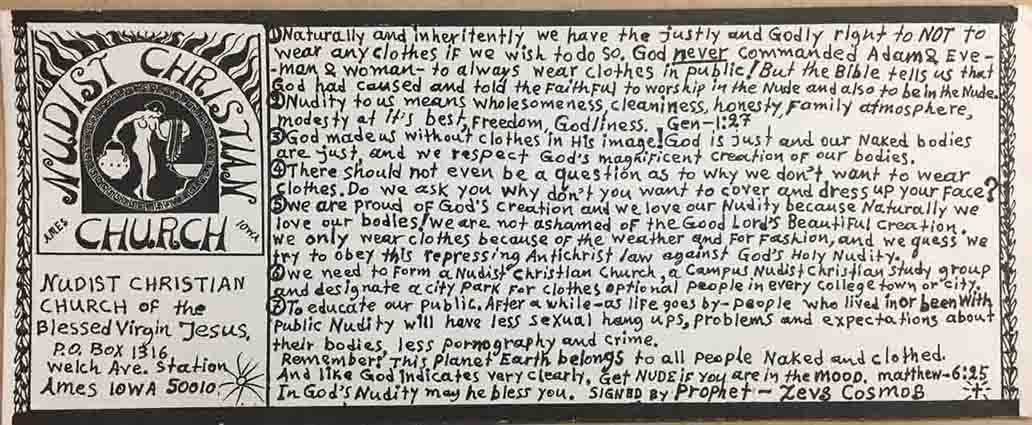 NUDIST CHRISTIAN
CHURCH
AMES IOWA
NUDIST CHRISTIAN
CHURCH OF the
Blessed Virgin Jesus,
P.O. BOX 1316
Welch Ave. Station
Ames IOWA 50010
① Naturally and inheritently we have the justly and Godly right to NOT to
wear any clothes if we wish to do so. God never commanded Adam & Eve-
-man & woman- to always wear clothes in public! But the Bible tells us that
God had caused and told the Faithful to worship in the Nude and also to be in the Nude.
② Nudity to us means wholesomeness, cleaniness, honesty, Family atmosphere,
modesty at it's best, Freedom, Godliness. Gen-1:27
③ God made us without clothes in His image! God is just and our Naked bodies
are just, and we respect God's magnificent creation of our bodies.
④ There should not even be a question as to why we don't, want to wear
clothes. Do we ask you why don't you want to cover and dress up your Face?
⑤ we are proud of God's creation and we love our Nudity because Naturally we
love our bodies! we are not ashamed of the Good Lord's Beautiful Creation.
we only wear clothes because of the weather and For Fashion, and we guess we
try to obey this repressing Antichrist law against God's Holy Nudity.
⑥ we need to Form a Nudist Christian Church, a Campus Nudist Christian Study group
and designate a city Park for clothes optional People in every college town or city.
⑦ To educate our public. After a while-as life goes by-people who lived in or been with
Public Nudity will have less sexual hang ups, problems and expectations about
their bodies, less pornography and Crime.
Remember! This Planet Earth belongs to all People Naked and clothed.
And like God indicates very clearly, Get NUDE if you are in the MOOD. matthew-6:25
In God's Nudity may he bless you. SIGNED BY Prophet - Zeus Cosmos